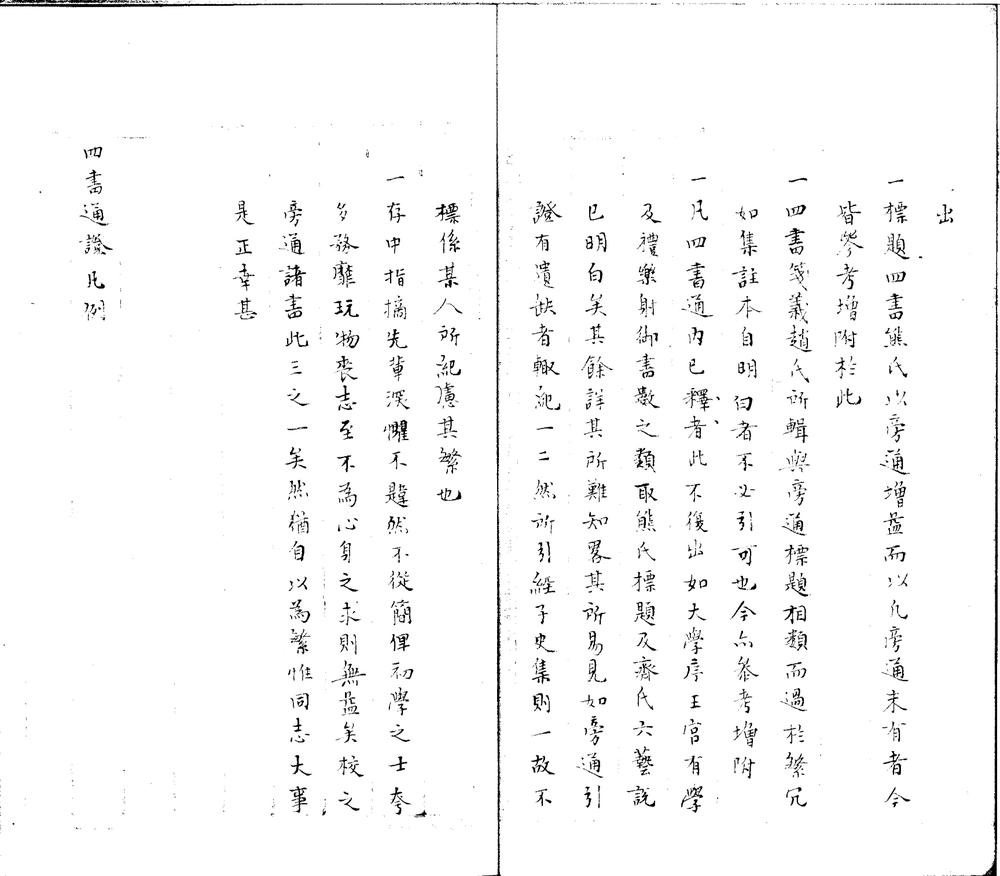 出
一標題四書熊氏以旁通增益而以凡旁通未有者今
皆叅考增附於此
一四書箋義趙氏所輯與旁通標題相類而過於繁冗
如集註本自明白者不必引可也今亦參考增附
一凡四書通內已釋者此不復出如大學序王官有學
及禮樂射御書數之類取熊氏標題及齊氏六藝説
已明白矣其餘詳其所難知畧其所易見如旁通引
證有潰缺者輙紀一二然所引經子史集則一故不
標係某人所紀慮其繁也
一存中指摘先軰深懼不韙然不從簡俾初學之士夸
多務靡玩物喪志至不為心身之求則無益矣校之
旁通諸書此三之一矣然猶自以為繁惟同志大事
是正幸甚
四書通證凡例